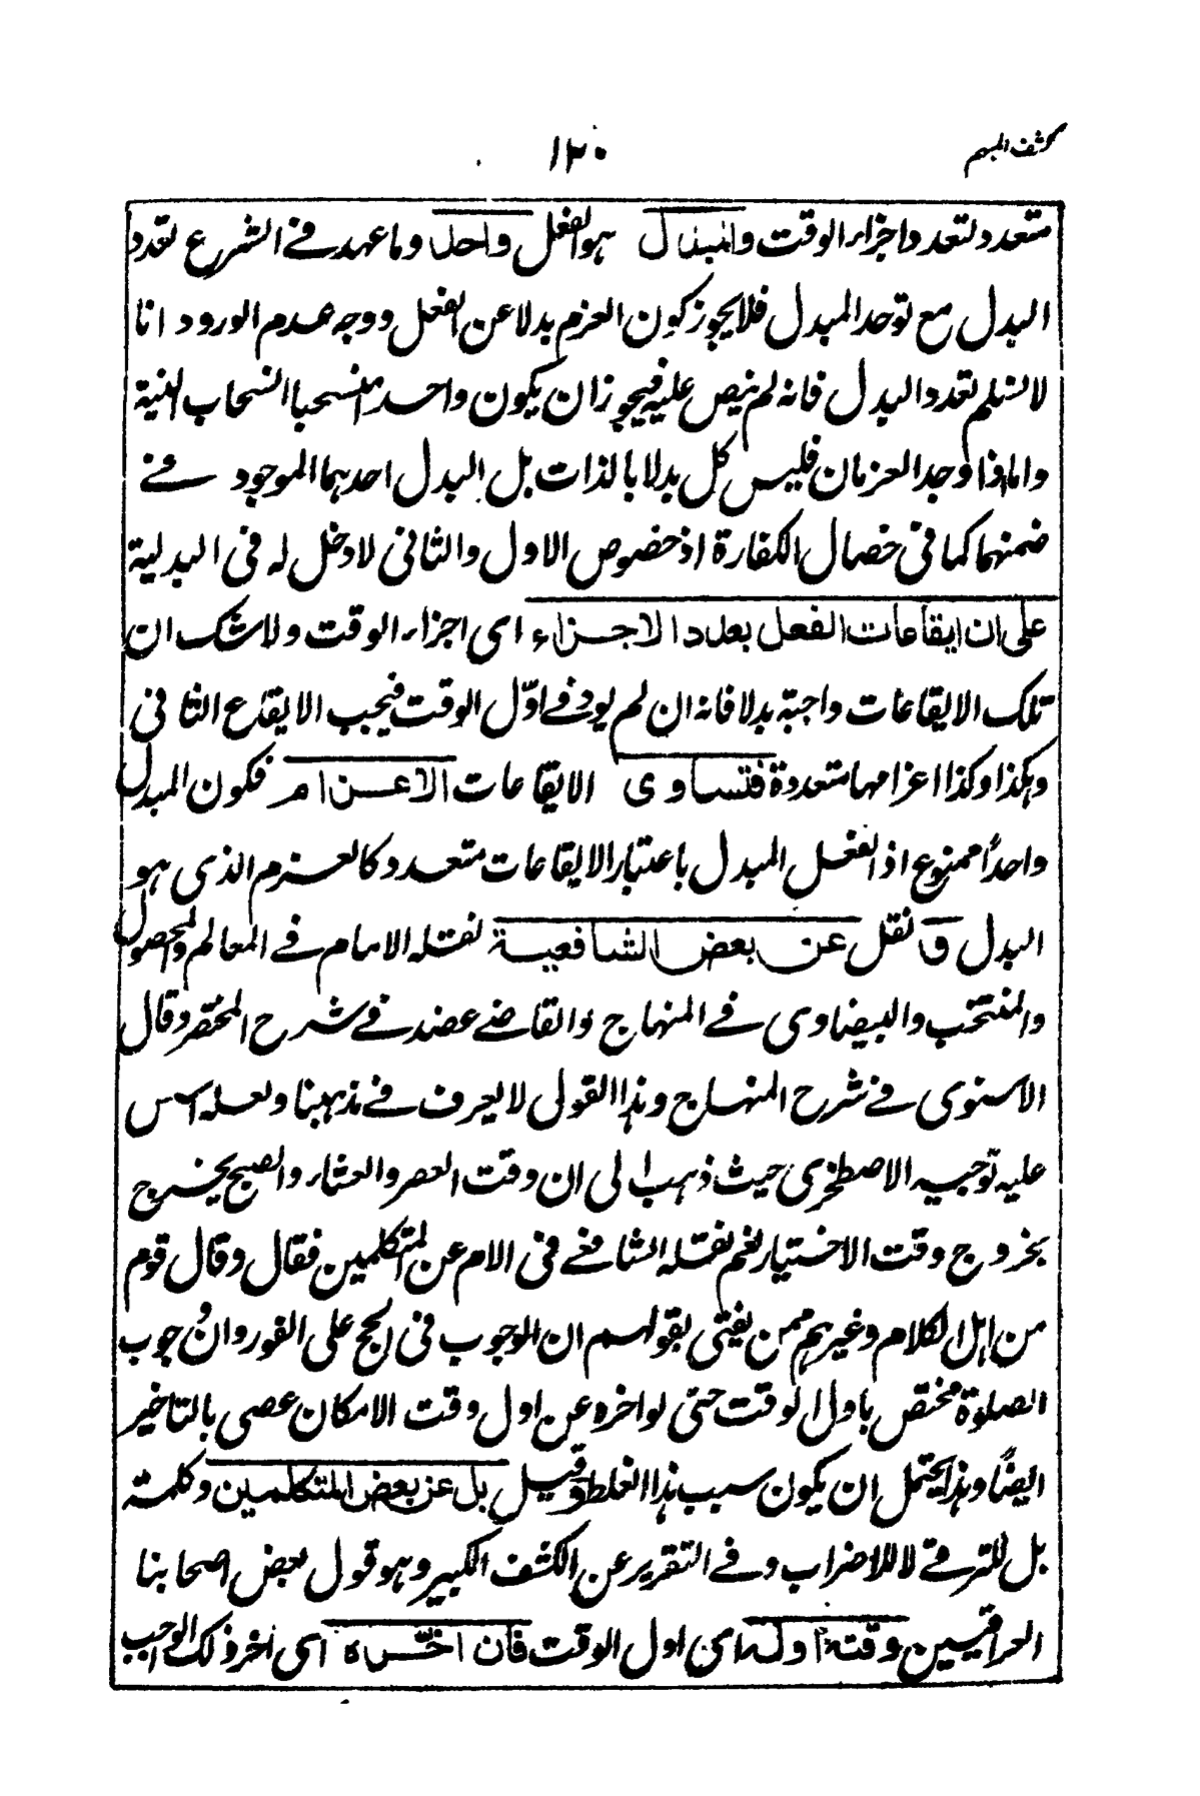 كشف المبهم
١٢٠
متعدد لتعدد اجزاء الوقت والمبدل هو الفعل واحد وما عهد فى الشرع تعدد
البدل مع توحد المبدل فلا يجوز كون العزم بدلا عن الفعل ووجه عدم الورود انا
لا نسلم تعدد البدل فانه لم ينص عليه فيجوز ان يكون واحدا منسحبا انسحاب النية
واما اذا وجد العزمان فليس كل بدلا بالذات بل البدل احدهما الموجود فى
ضمنهما كما فى خصال الكفارة اذ خصوص الاول والثانى لا دخل له فى البدلية
على ان ايقاعات الفعل بعدد الاجزاء اى اجزاء الوقت ولا شك ان
تلك الايقاعات واجبة بدلا فانه ان لم يود فى اوّل الوقت فيجب الايقاع الثانى
وهكذا وكذا اعزامها متعددة فتساوى الايقاعات الاعزام فكون المبدل
واحداً ممنوع اذ الفعل المبدل باعتبار الايقاعات متعدد كالعزم الذى هو
البدل و نقل عن بعض الشافعية نقله الامام فى المعالم والمحصول
والمنتخب والبيضاوى فى المنهاج والقاضى عضد فى شرح المختصر وقال
الاسنوى فى شرح المنهاج وهذا القول لا يعرف فى مذهبنا ولعله
عليه توجيه الاصطخرى حيث ذهب الى ان وقت العصر والعشاء والصبح يخرج
بخروج وقت الاختيار نعم نقله الشافعى فى الام عن المتكلمين فقال وقال قوم
من اهل الكلام وغيرهم ممن يفتى بقولهم ان الوجوب فى الحج على الفور وان وجوب
الصلوة مختص باول الوقت حتى لو اخره عن اول وقت الامكان عصى بالتاخير
ايضاً وهذا يحتمل ان يكون سبب هذا الغلط وقيل بل عن بعض المتكلمين وكلمة
بل للترقى لا للاضراب وفى التقرير عن الكشف الكبير وهو قول بعض اصحابنا
العراقيين وقته اوله اى اول الوقت فان اخّره اى اخر ذلك الواجب